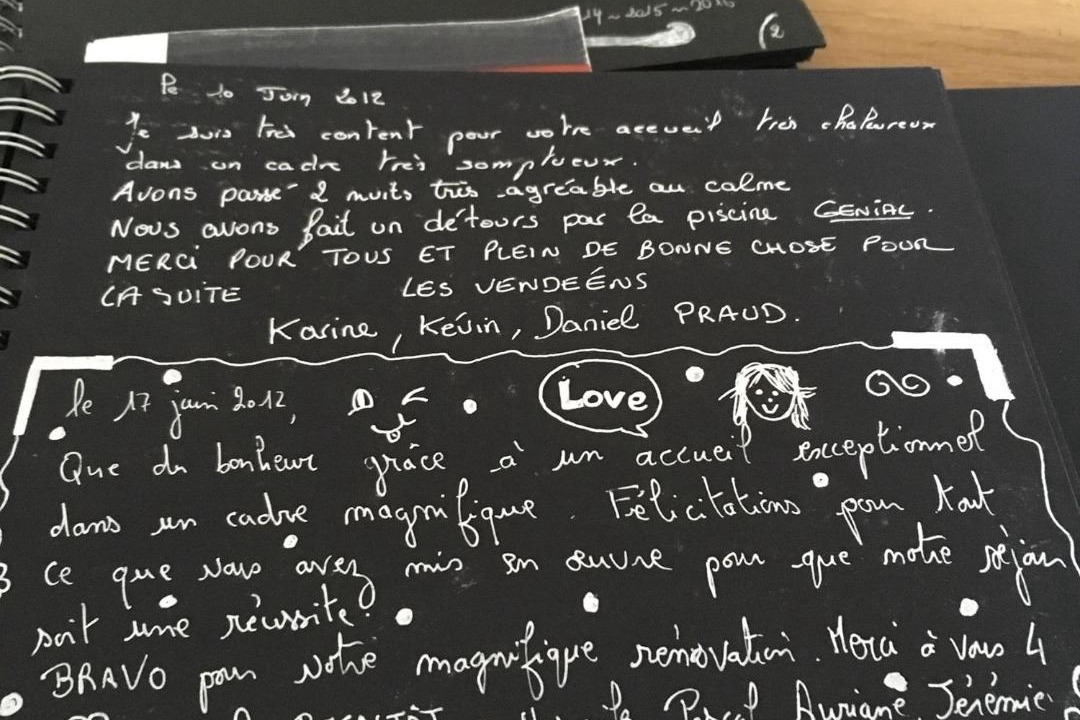 14~2015~2016
2
Le 10 Juin 2012
Je suis très content pour votre accueil très chaleureux
dans un cadre très somptueux.
Avons passé 2 nuits très agréable au calme
Nous avons fait un détours par la piscine GENIAL.
MERCI POUR TOUS ET PLEIN DE BONNE CHOSE POUR
LA SUITE LES VENDEÉNS
Karine, Kévin, Daniel PRAUD.
le 17 juin 2012, Love
Que du bonheur grâce à un accueil exceptionnel
dans un cadre magnifique. Félicitations pour tout
ce que vous avez mis en œuvre pour que notre séjour
soit une réussite!
BRAVO pour votre magnifique rénovation. Merci à vous 4
BIENTÔT Pascal Auriane, Jérémie